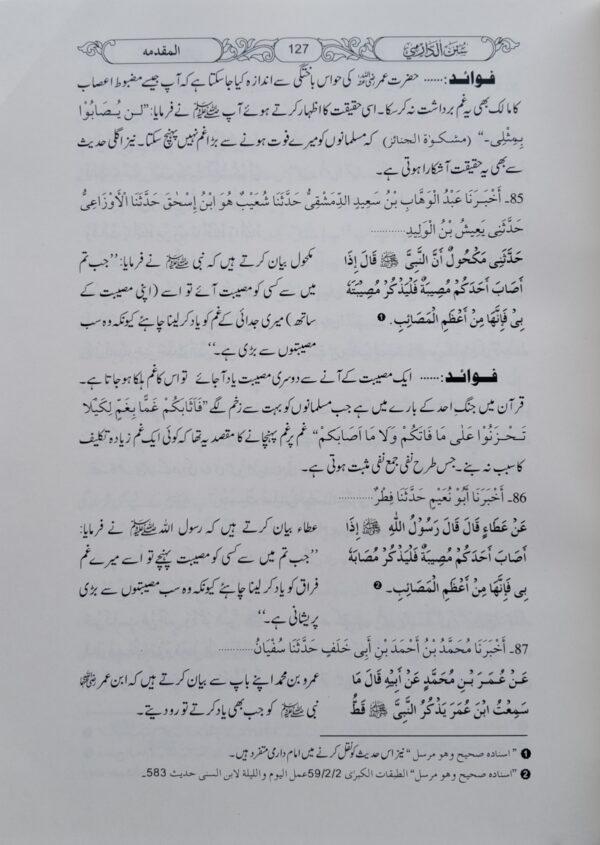 سنن الدارمی 127 المقدمه
فوائد:...... حضرت عمر رضی اللہ عنہ کی حواس باختگی سے اندازہ کیا جا سکتا ہے کہ آپ جیسے مضبوط اعصاب
کا مالک بھی یہ غم برداشت نہ کر سکا۔ اسی حقیقت کا اظہار کرتے ہوئے آپ ﷺ نے فرمایا: ”لَنْ يُصَابُوْا
بِمِثْلِی۔“ (مشكوٰة الجنائز) کہ مسلمانوں کو میرے فوت ہونے سے بڑا غم نہیں پہنچ سکتا۔ نیز اگلی حدیث
سے بھی یہ حقیقت آشکارا ہوتی ہے۔
85۔ أَخْبَرَنَا عَبْدُ الْوَهَّابِ بْنُ سَعِيدٍ الدِّمَشْقِيُّ حَدَّثَنَا شُعَيْبٌ هُوَ ابْنُ إِسْحٰقَ حَدَّثَنَا الْأَوْزَاعِيُّ
حَدَّثَنِي يَعِيشُ بْنُ الْوَلِيدِ............
حَدَّثَنِي مَكْحُولٌ أَنَّ النَّبِيَّ ﷺ قَالَ إِذَا
أَصَابَ أَحَدَكُمْ مُصِيبَةٌ فَلْيَذْكُرْ مُصِيْبَتَهُ
بِي فَإِنَّهَا مِنْ أَعْظَمِ الْمَصَائِبِ. ❶
مکحول بیان کرتے ہیں کہ نبی ﷺ نے فرمایا: ”جب تم
میں سے کسی کو مصیبت آئے تو اسے (اپنی مصیبت کے
ساتھ) میری جدائی کے غم کو یاد کر لینا چاہئے کیونکہ وہ سب
مصیبتوں سے بڑی ہے۔“
فوائد:...... ایک مصیبت کے آنے سے دوسری مصیبت یاد آ جائے تو اس کا غم ہلکا ہو جاتا ہے۔
قرآن میں جنگ احد کے بارے میں ہے جب مسلمانوں کو بہت سے زخم لگے ”فَاَثَابَكُمْ غَمًّا بِغَمٍّ لِكَيْلَا
تَحْزَنُوْا عَلٰى مَا فَاتَكُمْ وَلَا مَا اَصَابَكُمْ“ غم پر غم پہنچانے کا مقصد یہ تھا کہ کوئی ایک غم زیادہ تکلیف
کا سبب نہ بنے۔ جس طرح نفی جمع نفی مثبت ہوتی ہے۔
86۔ أَخْبَرَنَا أَبُو نُعَيْمٍ حَدَّثَنَا فِطْرٌ............
عَنْ عَطَاءٍ قَالَ قَالَ رَسُوْلُ اللّٰهِ ﷺ إِذَا
أَصَابَ أَحَدَكُمْ مُصِيبَةٌ فَلْيَذْكُرْ مُصَابَهُ
بِي فَإِنَّهَا مِنْ أَعْظَمِ الْمَصَائِبِ۔ ❷
عطاء بیان کرتے ہیں کہ رسول اللہ ﷺ نے فرمایا:
”جب تم میں سے کسی کو مصیبت پہنچے تو اسے میرے غم
فراق کو یاد کر لینا چاہئے کیونکہ وہ سب مصیبتوں سے بڑی
پریشانی ہے۔“
87۔ أَخْبَرَنَا مُحَمَّدُ بْنُ أَحْمَدَ بْنِ أَبِي خَلَفٍ حَدَّثَنَا سُفْيَانُ............
عَنْ عُمَرَ بْنِ مُحَمَّدٍ عَنْ أَبِيهِ قَالَ مَا
سَمِعْتُ ابْنَ عُمَرَ يَذْكُرُ النَّبِيَّ ﷺ قَطُّ
عمرو بن محمد اپنے باپ سے بیان کرتے ہیں کہ ابن عمر رضی اللہ عنہ
نبی ﷺ کو جب بھی یاد کرتے تو رو دیتے۔
❶ ”اسناده صحيح وهو مرسل“ نیز اس حدیث کو نقل کرنے میں امام دارمی متفرد ہیں۔
❷ ”اسناده صحيح وهو مرسل“ الطبقات الكبرٰى 59/2/2 عمل اليوم والليلة لابن السنى حديث 583۔